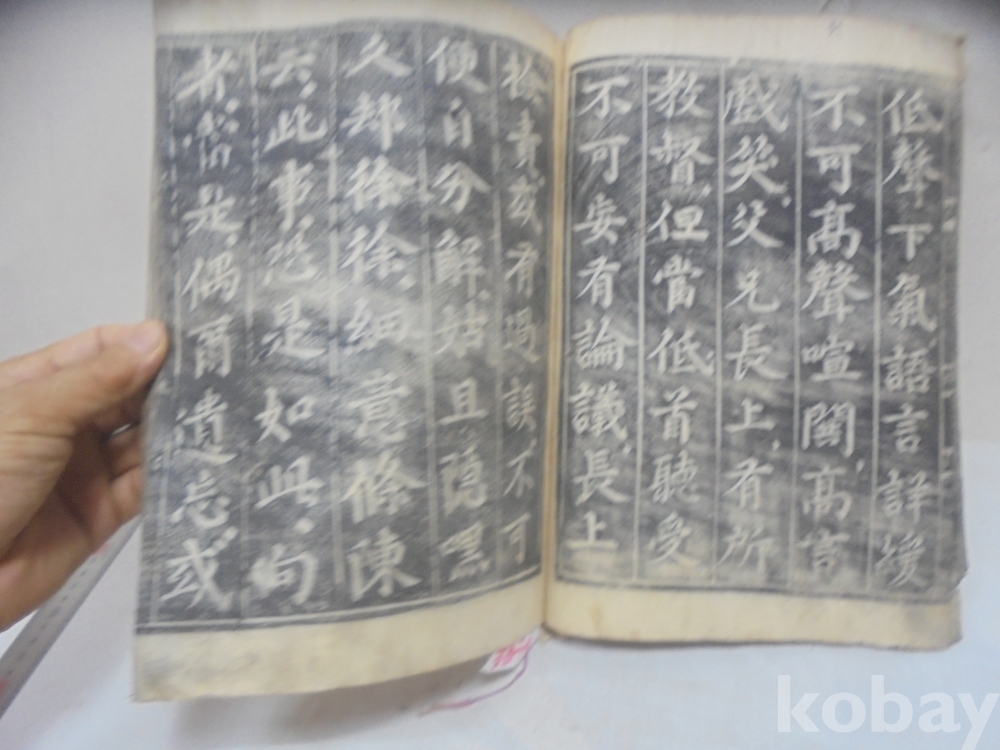 低聲下氣語言詳緩
不可髙聲喧閧髙言
戲笑父兄長上有所
教督但當低首聽受
不可妄有論議長上
撿責或有過誤不可
便自分解姑且隱嘿
久却徐徐細意條陳
云此事恐是如此向
者當是偶爾遺忘或
kobay